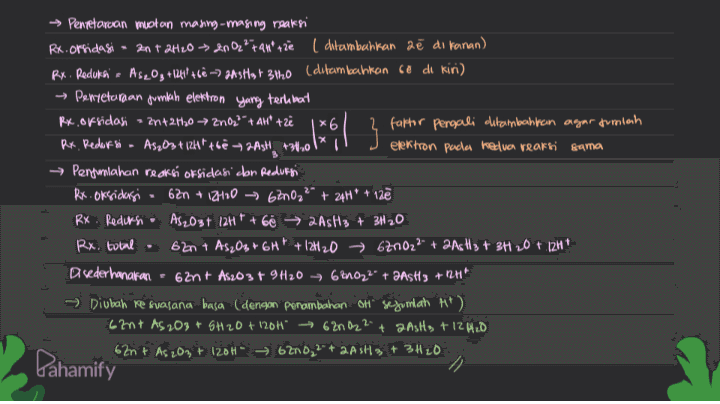 → Penyetaraan muatan masing-masing reaksi
Rx. oksidasi = Zn + 2H2O → ZnO2²⁻ + 4H⁺ + 2ē ( ditambahkan 2ē di kanan)
Rx. Reduksi = As2O3 + 12H⁺ + 6ē → 2AsH3 + 3H2O (ditambahkan 6ē di kiri)
→ Penyetaraan jumlah elektron yang terlibat
Rx. oksidasi = Zn + 2H2O → ZnO2²⁻ + 4H⁺ + 2ē | x 6 | } faktor pengali ditambahkan agar jumlah
Rx. Reduksi = As2O3 + 12H⁺ + 6ē → 2AsH3 + 3H2O | x 1 | elektron pada kedua reaksi sama
→ Penjumlahan reaksi oksidasi dan Reduksi
Rx. oksidasi = 6Zn + 12H2O → 6ZnO2²⁻ + 24H⁺ + 12ē
Rx. Reduksi = As2O3 + 12H⁺ + 6ē → 2AsH3 + 3H2O
Rx. total = 6Zn + As2O3 + 6H⁺ + 12H2O → 6ZnO2²⁻ + 2AsH3 + 3H2O + 12H⁺
Disederhanakan = 6Zn + As2O3 + 9H2O → 6ZnO2²⁻ + 2AsH3 + 12H⁺
→ Diubah ke suasana basa (dengan penambahan OH⁻ sejumlah H⁺)
6Zn + As2O3 + 9H2O + 12OH⁻ → 6ZnO2²⁻ + 2AsH3 + 12H2O
6Zn + As2O3 + 12OH⁻ → 6ZnO2²⁻ + 2AsH3 + 3H2O //
Pahamify